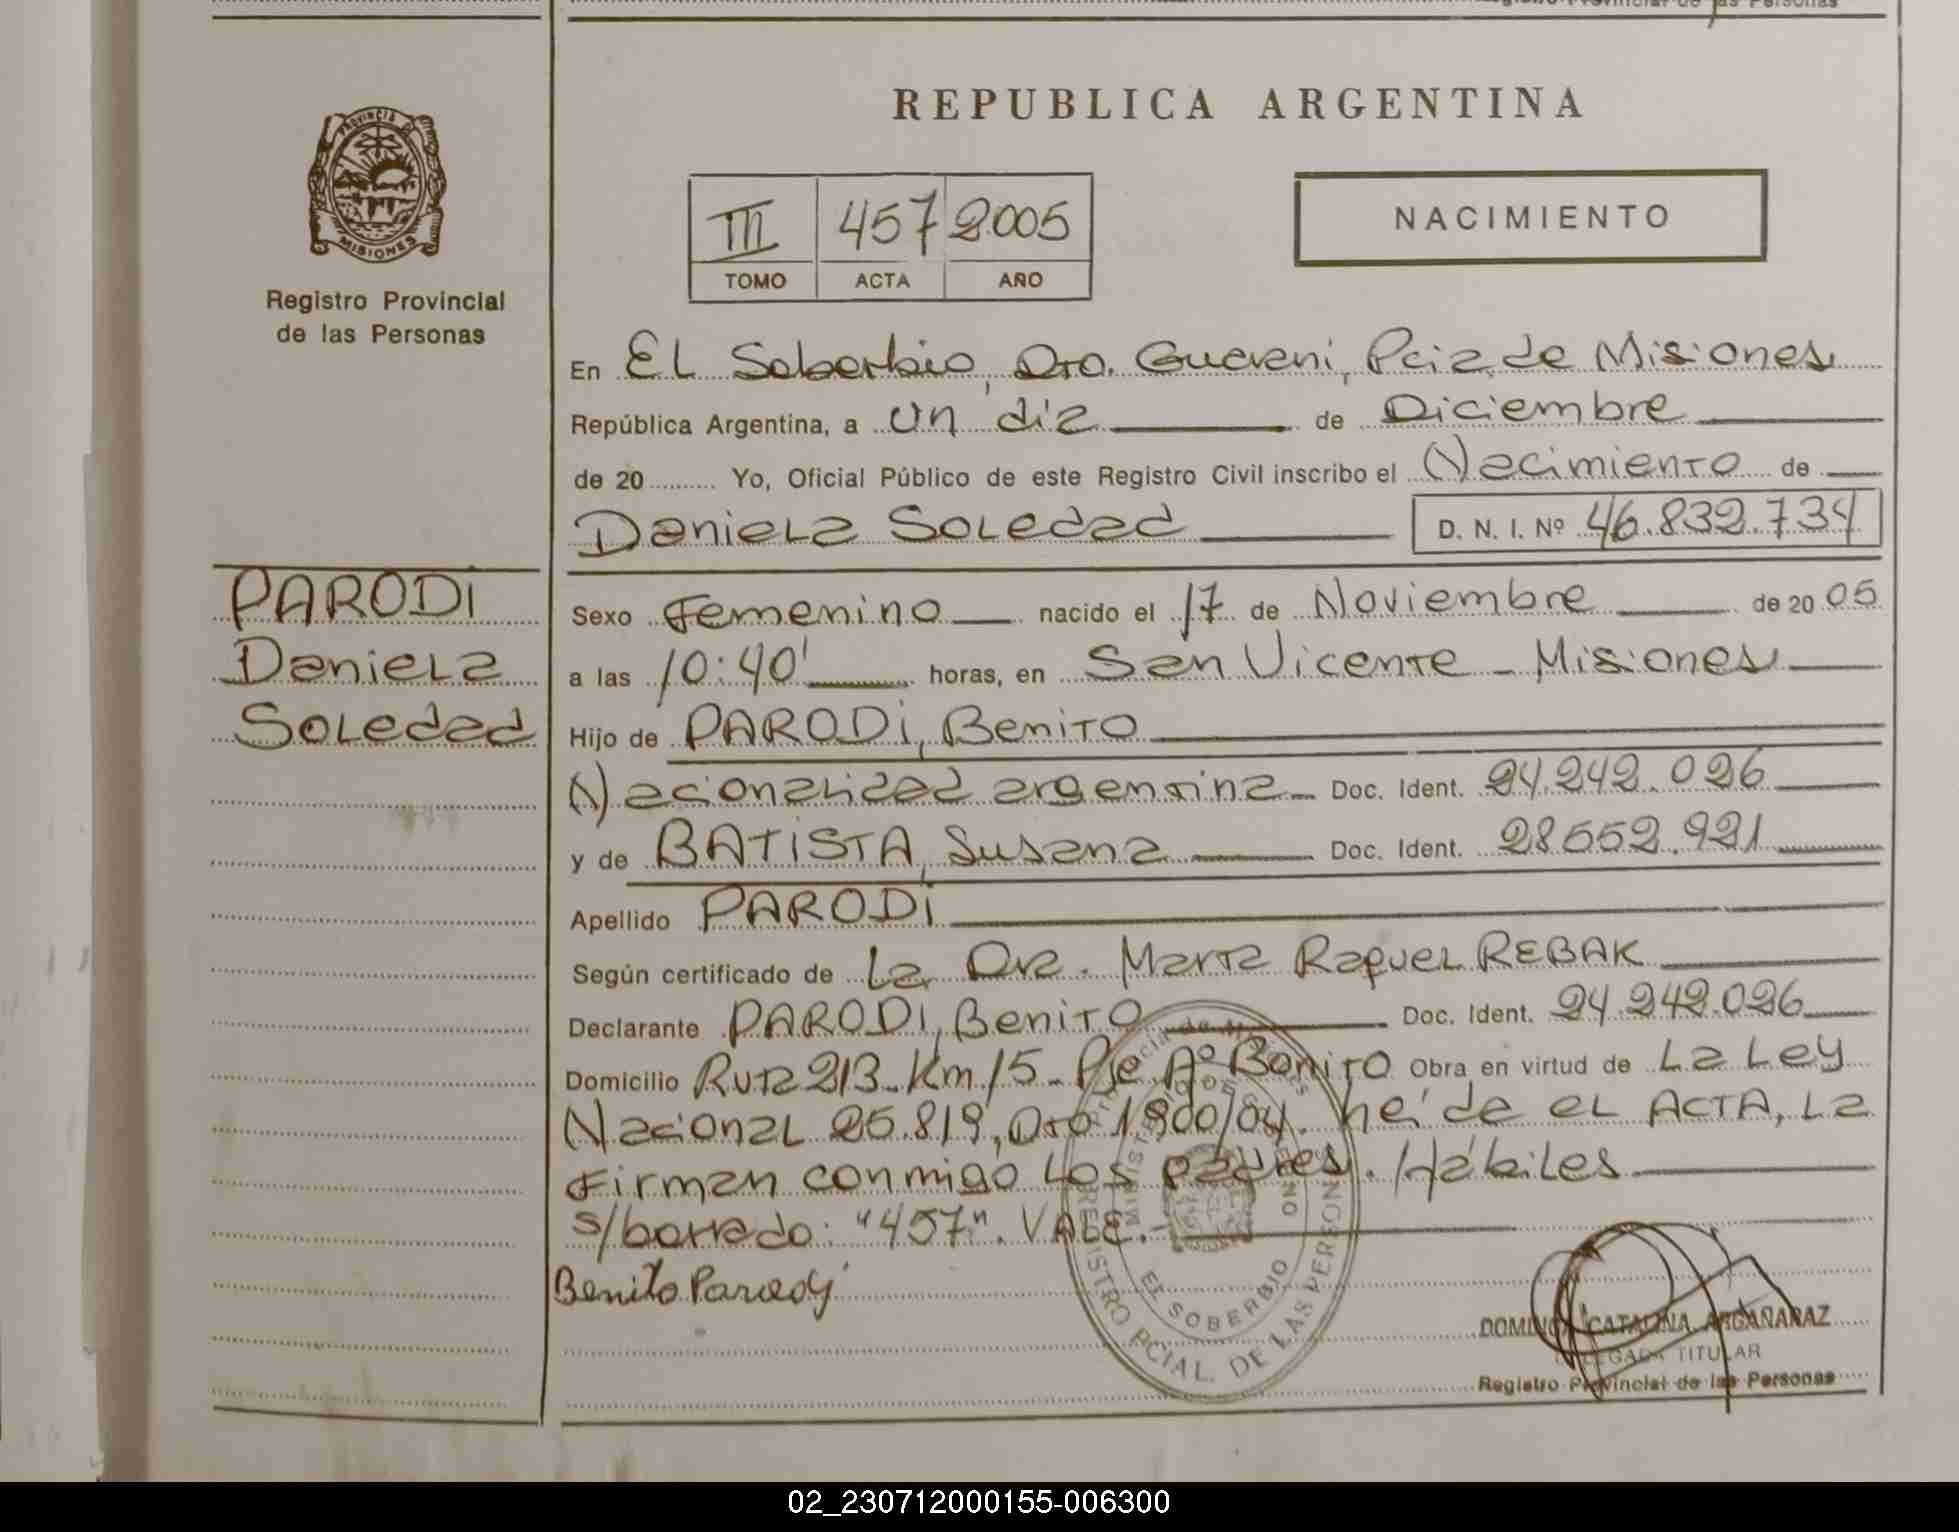 REPUBLICA ARGENTINA
PROVINCIA DE
MISIONES
Registro Provincial
de las Personas
III 457 2005
TOMO ACTA AÑO
NACIMIENTO
En El Soberbio, Dto. Guarani, Pcia. de Misiones
República Argentina, a un día de Diciembre
de 20 Yo, Oficial Público de este Registro Civil inscribo el Nacimiento de
Daniela Soledad D. N. I. Nº 46.832.734
PARODI
Daniela
Soledad
Sexo Femenino nacido el 17 de Noviembre de 20 05
a las 10:40' horas, en San Vicente - Misiones
Hijo de PARODI, Benito
Nacionalidad argentina Doc. Ident. 24.242.026
y de BATISTA, Susana Doc. Ident. 28552.921
Apellido PARODI
Según certificado de La Dra. Marta Raquel REBAK
Declarante PARODI, Benito Doc. Ident. 24.242.026
Domicilio Ruta 213. Km. 15 - Pje Aº Bonito Obra en virtud de La Ley
Nacional 25.819, Dto 1900/04. heí de el ACTA, La
Firman conmigo Los padres. Hábiles
s/borrado: "457". VALE.-
Benito Parody
REGISTRO PCIAL. DE LAS PERSONAS
EL SOBERBIO
DOMINGA CATALINA ARGAÑARAZ
DELEGADA TITULAR
Registro Provincial de las Personas
02_230712000155-006300